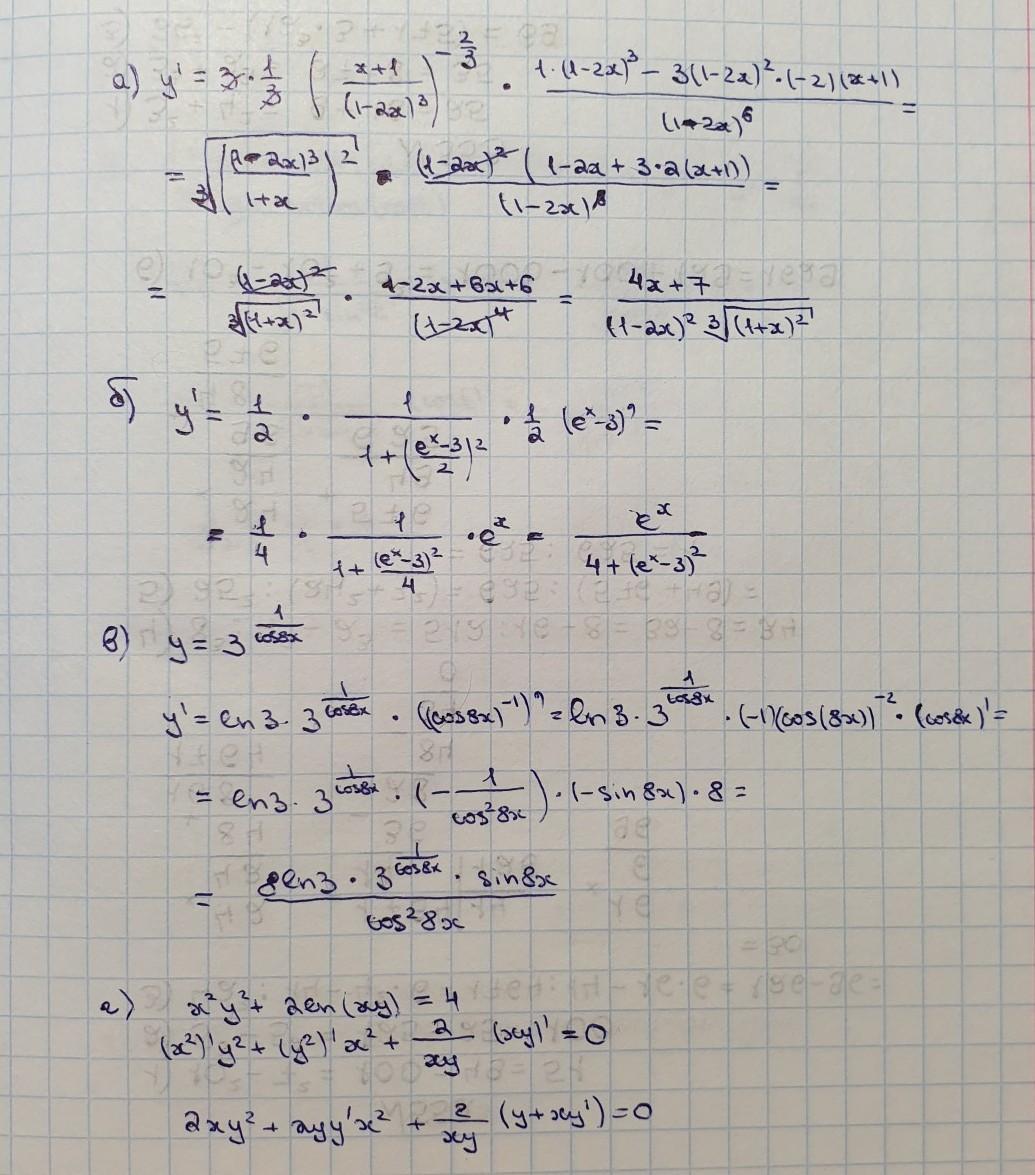 а) y' = 3·1/3 ((x+1)/(1-2x)^3)^(-2/3) · (1·(1-2x)^3 - 3(1-2x)^2·(-2)(x+1))/(1-2x)^6 =
= ∛(((1-2x)^3/(1+x))^2) · ((1-2x)^2 (1-2x+3·2(x+1)))/(1-2x)^6 =
= (1-2x)^2/∛((1+x)^2) · (1-2x+6x+6)/(1-2x)^4 = (4x+7)/((1-2x)^2 ∛((1+x)^2))
б) y' = 1/2 · 1/(1+((e^x-3)/2)^2) · 1/2 (e^x-3)' =
= 1/4 · 1/(1+(e^x-3)^2/4) · e^x = e^x/(4+(e^x-3)^2)
в) y = 3^(1/cos8x)
y' = ln3·3^(1/cos8x) · ((cos8x)^(-1))' = ln3·3^(1/cos8x) · (-1)(cos(8x))^(-2) · (cos8x)' =
= ln3·3^(1/cos8x) · (-1/cos^2 8x) · (-sin8x)·8 =
= (8ln3·3^(1/cos8x) · sin8x)/cos^2 8x
г) x^2y^2 + 2ln(xy) = 4
(x^2)'y^2 + (y^2)'x^2 + 2/(xy) (xy)' = 0
2xy^2 + 2yy'x^2 + 2/(xy) (y+xy') = 0